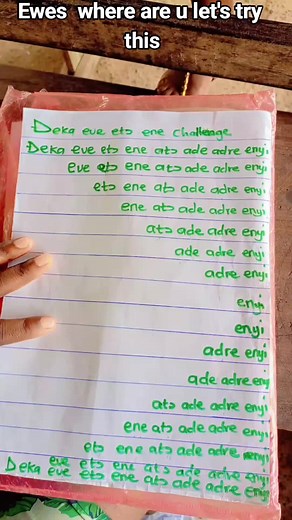 Ewes where are u let's try
this
Deka eve etɔ ene challenge
Ɖeka eve etɔ ene atɔ ade adre enyi
eve etɔ ene atɔ ade adre enyi
etɔ ene atɔ ade adre enyi
ene atɔ ade adre enyi
atɔ ade adre enyi
ade adre enyi
adre enyi
enyi
enyi
adre enyi
ade adre enyi
atɔ ade adre enyi
ene atɔ ade adre enyi
etɔ ene atɔ ade adre enyi
eve etɔ ene atɔ ade adre enyi
Deka eve etɔ ene atɔ ade adre enyi